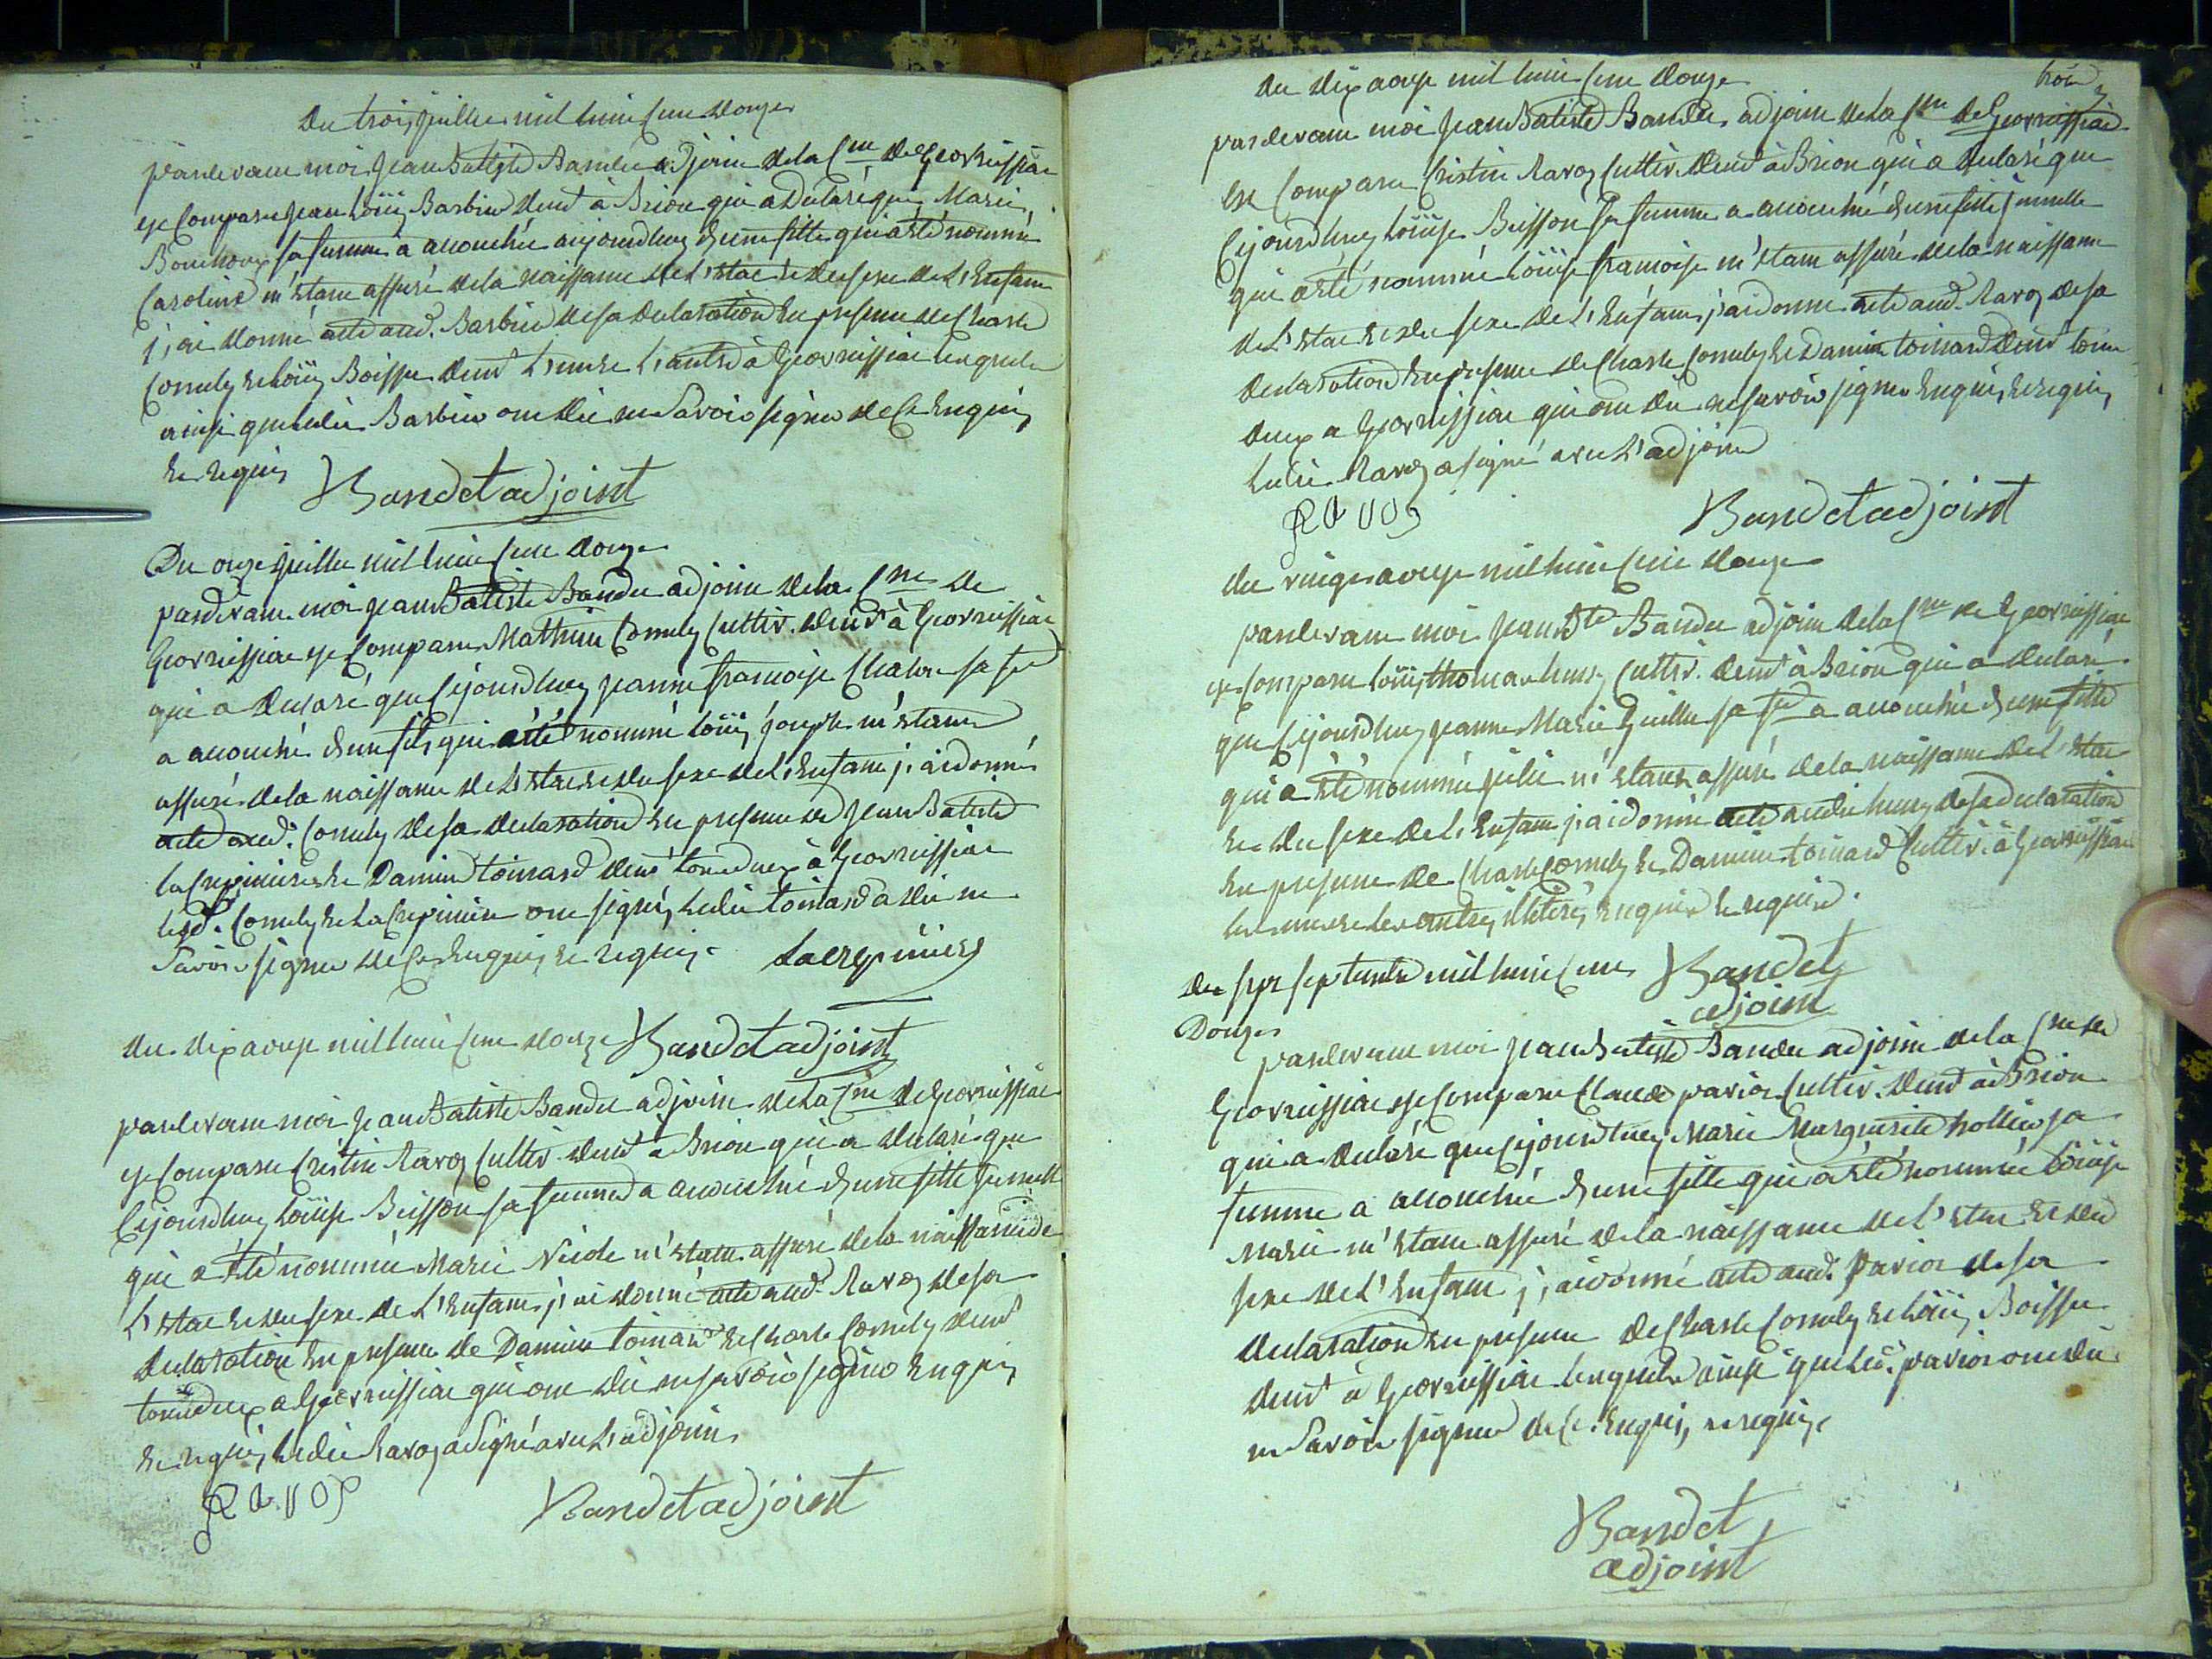 Du trois juillet mil huit cent douze
pardevant moi Jean Battiste Bandet adjoint de la Cne de Georeissiat
est comparu jean Louis Barbier demt à Brion qui a déclaré que Marie
sa femme a accouchée aujourdhuy d'une fille qui a été nommé
Caroline m'étant assuré de la naissance de l'état et du sexe de l'Enfant
j'ai donné acte aud. Barbier de sa declaration En presence de Charle
Comuly et Louis Boisset demt l'un et l'autre à Georeissiat lesquels
ainsi que ledit Barbier ont dit ne savoir signer de ce Enquis
et requis
Bandet adjoint
Du onze juillet mil huit cent douze
pardevant moi jean Batiste Bandet adjoint de la Cne de
Georeissiat est comparu Mathieu Comuly cultiv. demt à Georeissiat
qui a declaré que cejourdhuy jeanne francoise sa fe
a accouché d'un fils qui a été nommé Louis joseph m'étant
assuré de la naissance de l'état et du sexe de l'Enfant j'ai donné
acte aud. Comuly de sa declaration En presence de Jean Batiste
lacrepiniere et Damien toinard demt tous deux à Georeissiat
led. Comuly et Lacrepiniere ont signé, ledit toinard a dit ne
Savoir signer de ce Enquis et requis. Lacrepiniere
du dix aoust mil huit cent douze Bandet adjoint
pardevant moi jean Batiste Bandet adjoint de la Cne de Georeissiat
est comparu Cristin Ravoz cultiv. demt a Brion qui a declaré que
Cejourdhuy Louise Buisson sa femme a accouché d'une fille jumelle
qui a été nommée Marie m'étant assuré de la naissance de
l'état et du sexe de l'Enfant j'ai donné acte aud. Ravoz de sa
declaration En presence de Damien toinard et Charle Comuly demt
tous deux a Georeissiat qui ont dit ne savoir signer Enquis
et requis ledit Ravoz a signé avec l'adjoint
Ravos Bandet adjoint
Du dix aoust mil huit cent douze trois
pardevant moi jean Batiste Bandet, adjoint de la Cne de Georeissiat
Est comparu Cristin Ravoz cultiv. demt à Brion qui a declaré que
Cejourdhuy Louise Buisson Sa femme a accouché d'une fille jumelle
qui a été nommé Louise francoise m'étant assuré de la naissance
de l'état et du sexe de l'Enfant, j'ai donné acte aud. Ravoz de sa
declaration En presence de Charle Comuly et Damien toinard demt tous
deux a Georeissiat qui ont dit ne savoir signer Enquis, et requis,
ledit Ravoz a signé avec l'adjoint
Ravos Bandet adjoint
du vingt aoust mil huit cent douze
pardevant moi jean Bte Bandet adjoint de la Cne de Georeissiat
est comparu Louis thomas cultiv. demt à Brion qui a declaré
que cejourdhuy jeanne Marie sa fe a accouchée d'une fille
qui a été nommée julie m'étant assuré de la naissance de l'état
et du sexe de l'Enfant j'ai donné acte audit de sa declaration
En presence de Charle Comuly et Damien toinard cultiv. à Georeissiat
les uns et les autres illetrés Enquis et requis.
du sept septembre mil huit cent Bandet
Douze adjoint
pardevant moi jean Batiste Bandet adjoint de la Cne de
Georeissiat est comparu Claude cultiv. demt à Brion
qui a declaré que cejourdhuy Marie Marguerite sa
femme a accouchée d'une fille qui a été nommée Louise
Marie m'étant assuré de la naissance de l'état et du
sexe de l'Enfant j'ai donné acte aud. de sa
declaration En presence de Charle Comuly et Louis Boisset
demt à Georeissiat lesquels ainsi que led. ont dit
ne Savoir signer de ce Enquis, et requis
Bandet
adjoint